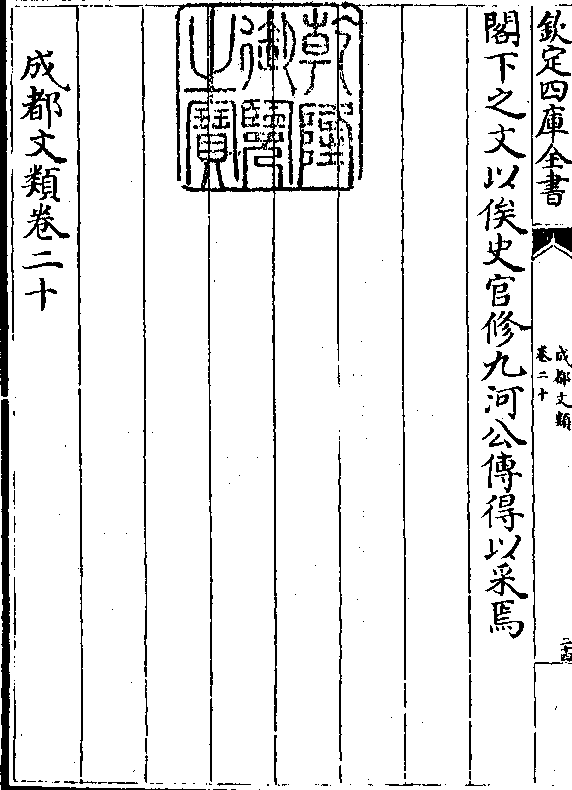 欽定四庫全書
成都文類
卷二十
二十四
閣下之文以俟史官修九河公傳得以采焉
乾隆
御覽
之寶
成都文類卷二十